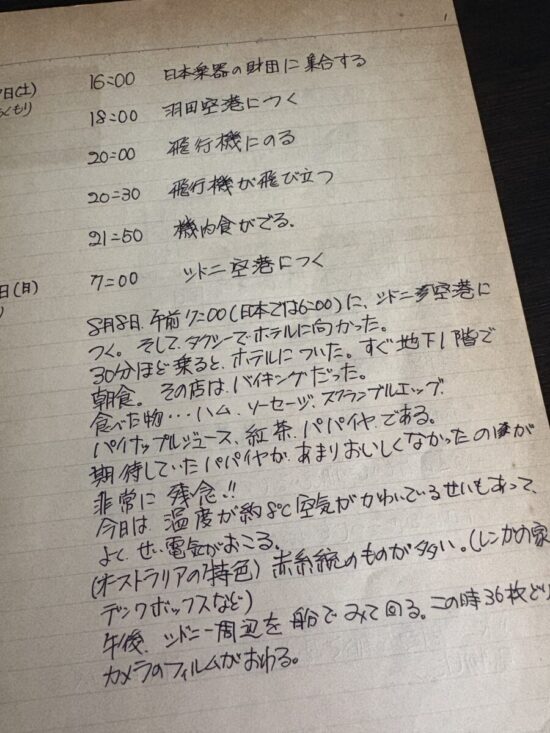 1
日(土) 16:00 日本楽器の財田に集合する
くもり
18:00 羽田空港につく
20:00 飛行機にのる
20:30 飛行機が飛び立つ
21:50 機内食がでる。
日(月) 7:00 シドニ空港につく
8月8日、午前7:00(日本では6:00)に、シドニ空港に
つく。そして、タクシーでホテルに向かった。
30分ほど乗ると、ホテルについた。すぐ地下1階で
朝食。その店は、バイキングだった。
食べた物…ハム、ソーセージ、スクランブルエッグ、
パイナップルジュース、紅茶、パパイヤ、である。
期待していたパパイヤが、あまりおいしくなかったのが
非常に残念!!
今日は、温度が約8℃空気がかわいているせいもあって、
よく、せい電気がおこる。
(オーストラリアの特色)赤系統のものが多い。(レンガの家
デンワボックスなど)
午後、シドニー周辺を船でみて回る。この時36枚どり
カメラのフィルムがおわる。